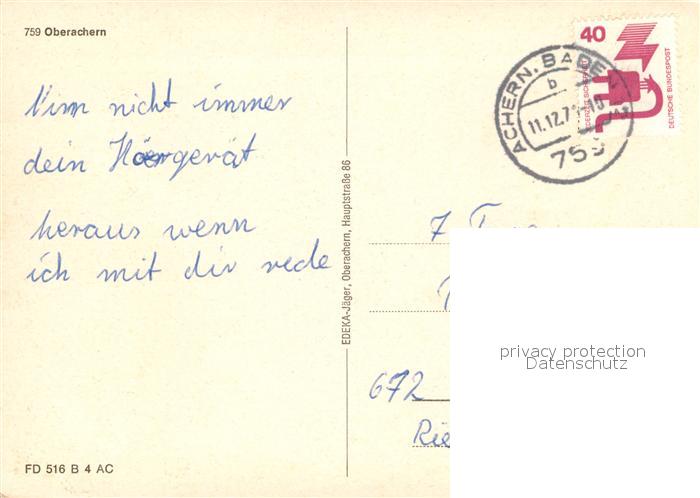 759 Oberachern
40
DEUTSCHE BUNDESPOST
ACHERN, BADEN
b
11.12.7
759
Nimm nicht immer
dein Hörgerät
heraus wenn
ich mit dir rede
EDEKA-Jäger, Oberachern, Hauptstraße 86
7
672
Rie
privacy protection
Datenschutz
FD 516 B 4 AC